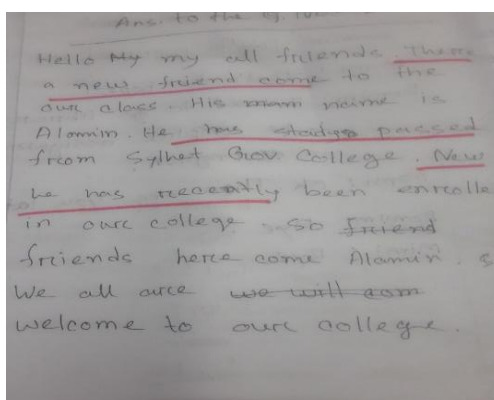 Ans. to the Q. No
Hello My my all friends. There
a new friend come to the
our class. His mam name is
Alamin. He has studys passed
from Sylhet Gov College. New
he has recently been enrolle
in our college so friend
friends here come Alamin. s
We all are we will com
welcome to our college.